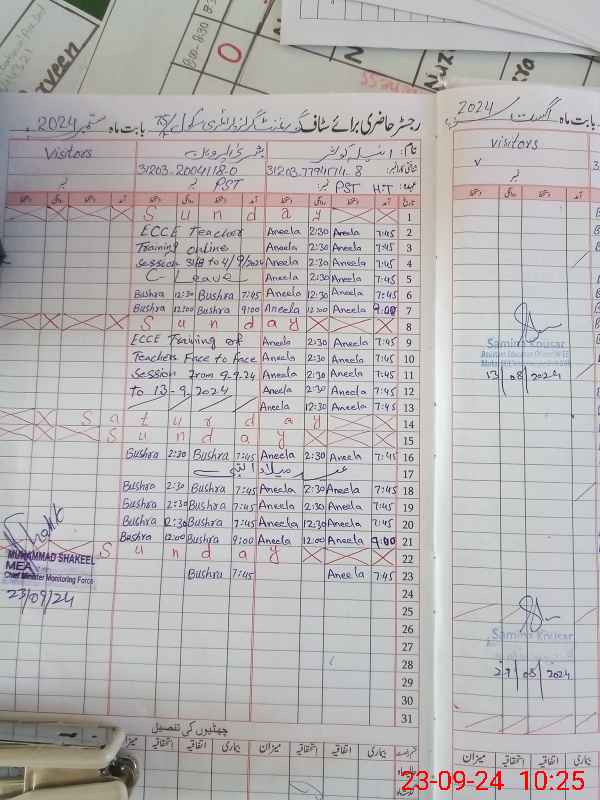 رجسٹر حاضری برائے سٹاف گورنمنٹ گرلز سکول بابت ماہ ستمبر 2024
بابت ماہ اگست 2024
نام: انیلہ کوثر
Visitors
visitors
شناختی کارڈ نمبر: 31203-7794514-8
31203-2004118-0
عہدہ: H.T PST نمبر: PST نمبر
تاریخ آمد دستخط روانگی دستخط آمد دستخط روانگی دستخط
S u n d a y 1
ECCE Teacher Aneela 2:30 Aneela 7:45 2
Training online Aneela 2:30 Aneela 7:45 3
Session 31/8 to 4/9/2024 Aneela 2:30 Aneela 7:45 4
C Leave Aneela 2:30 Aneela 7:45 5
Bushra 12:30 Bushra 7:45 Aneela 12:30 Aneela 7:45 6
Bushra 12:00 Bushra 9:00 Aneela 12:00 Aneela 9:00 7
S u n d a y 8
ECCE Training of Aneela 2:30 Aneela 7:45 9
Teachers Face to Face Aneela 2:30 Aneela 7:45 10
Session from 9-9-24 Aneela 2:30 Aneela 7:45 11
to 13-9-2024 Aneela 2:30 Aneela 7:45 12
Aneela 12:30 Aneela 7:45 13
S a t u r d a y 14
S u n d a y 15
Bushra 2:30 Bushra 7:45 Aneela 2:30 Aneela 7:45 16
عید میلاد النبی 17
Bushra 2:30 Bushra 7:45 Aneela 2:30 Aneela 7:45 18
Bushra 2:30 Bushra 7:45 Aneela 2:30 Aneela 7:45 19
Bushra 12:30 Bushra 7:45 Aneela 12:30 Aneela 7:45 20
Bushra 12:00 Bushra 9:00 Aneela 12:00 Aneela 9:00 21
S u n d a y 22
Bushra 7:45 Aneela 7:45 23
24
25
26
27
28
29
30
31
MUHAMMAD SHAKEEL
MEA
Chief Minister Monitoring Force
23/09/24
Samina Kousar
13/08/2024
Samina Kousar
29/08/2024
چھٹیوں کی تفصیل
بیماری اتفاقیہ استحقاقیہ میزان بیماری اتفاقیہ استحقاقیہ میزان
اتفاقیہ استحقاقیہ میزان
23-09-24 10:25